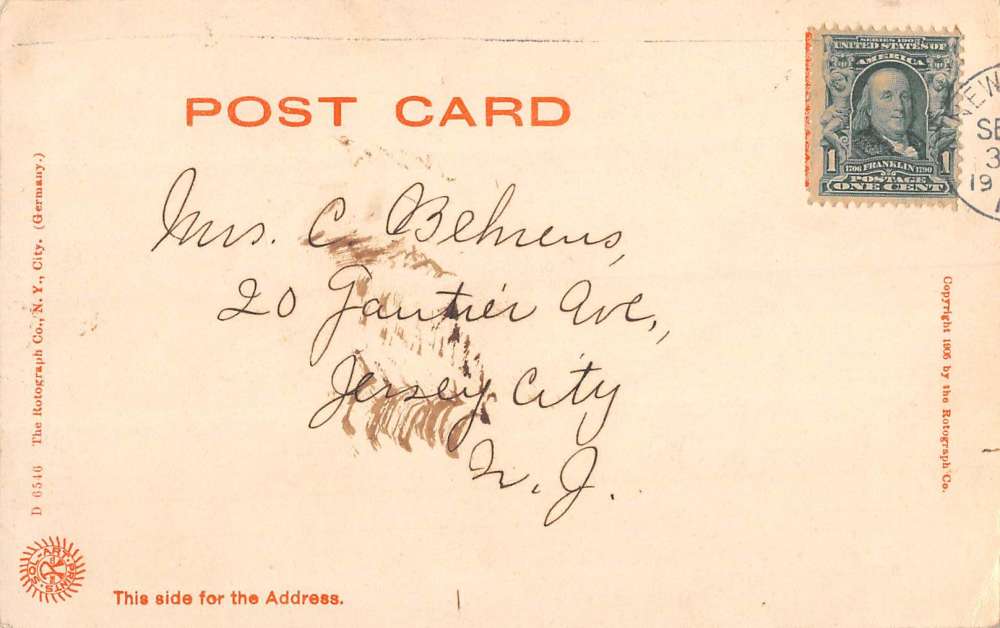 POST CARD
SERIES 1902
UNITED STATES OF
AMERICA
1 1706 FRANKLIN 1790 1
POSTAGE
ONE CENT
NEW
SE
3
19
Mrs. C. Behrens,
20 Gautier Ave.,
Jersey City
N. J.
D 6546 The Rotograph Co., N. Y., City. (Germany.)
Copyright 1905 by the Rotograph Co.
SOL-ART-PRINTS
This side for the Address.